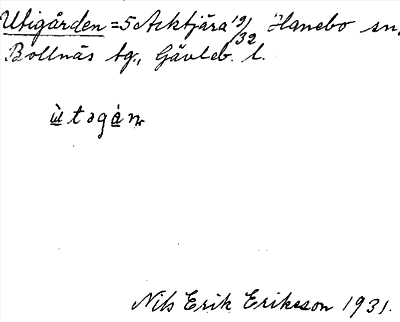 Utigården = 5 Acktjära 19/32 Hanebo sn,
Bollnäs tg., Gävleb. l.
ùtəgán
Nils Erik Eriksson 1931.